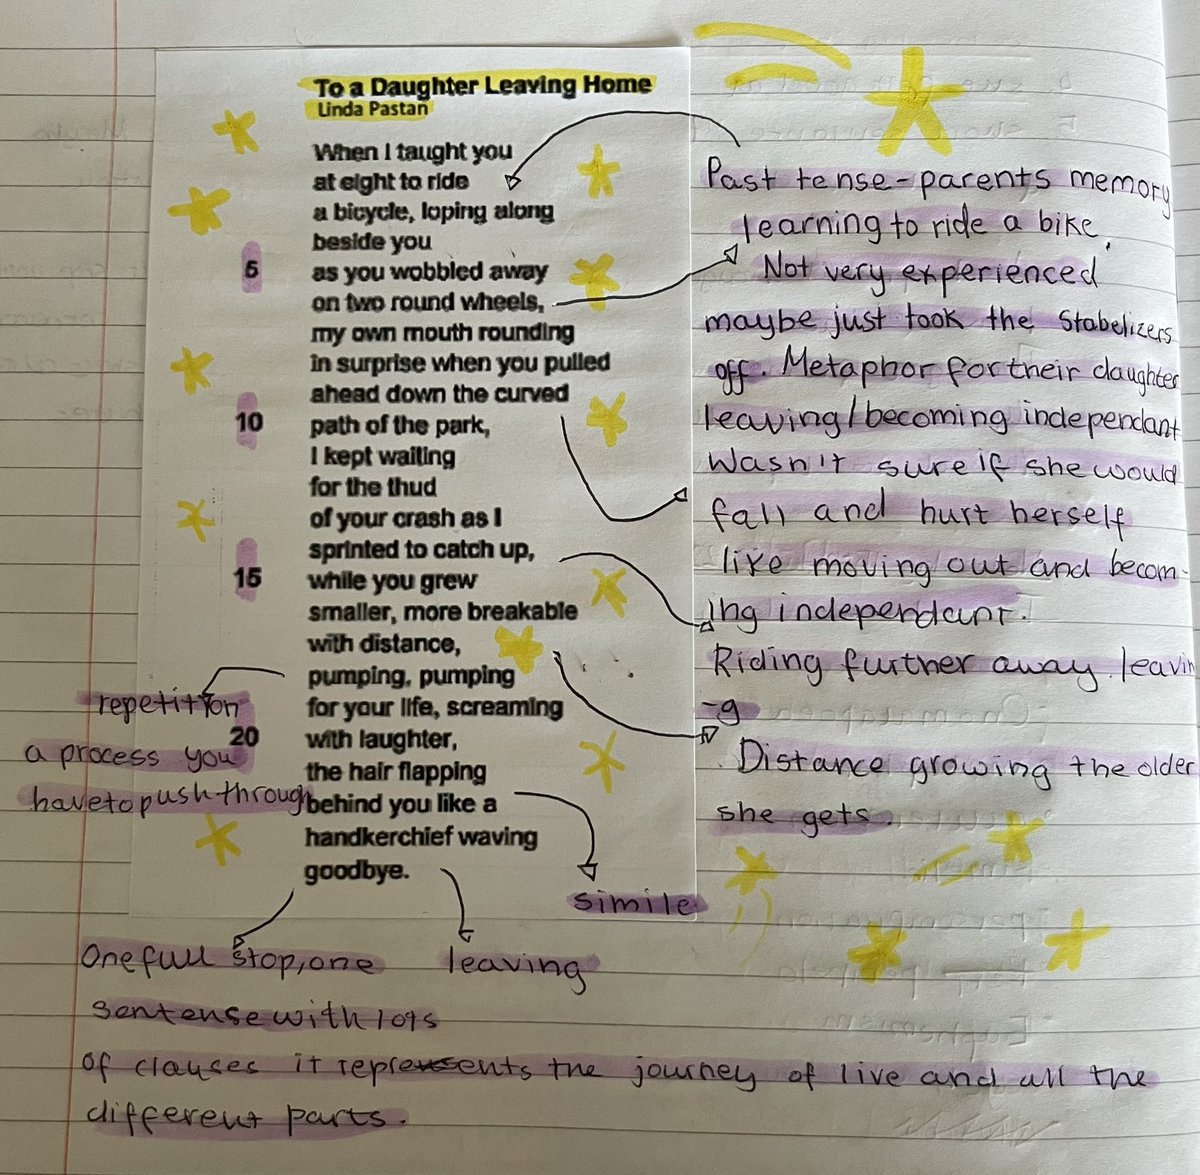 To a Daughter Leaving Home
Linda Pastan
When I taught you
at eight to ride
a bicycle, loping along
beside you
5 as you wobbled away
on two round wheels,
my own mouth rounding
in surprise when you pulled
ahead down the curved
10 path of the park,
I kept waiting
for the thud
of your crash as I
sprinted to catch up,
15 while you grew
smaller, more breakable
with distance,
pumping, pumping
for your life, screaming
20 with laughter,
the hair flapping
behind you like a
handkerchief waving
goodbye.
Past tense-parents memory
learning to ride a bike.
Not very experienced
maybe just took the stabelizers
off. Metaphor for their daughter
leaving/becoming independant
Wasn't sure if she would
fall and hurt herself
like moving out and becom-
ing independant.
Riding further away leavin
-g
Distance growing the older
she gets.
repetition
a process you
have to push through
simile
leaving
One full stop, one
sentence with lots
of clauses it represents the journey of live and all the
different parts.